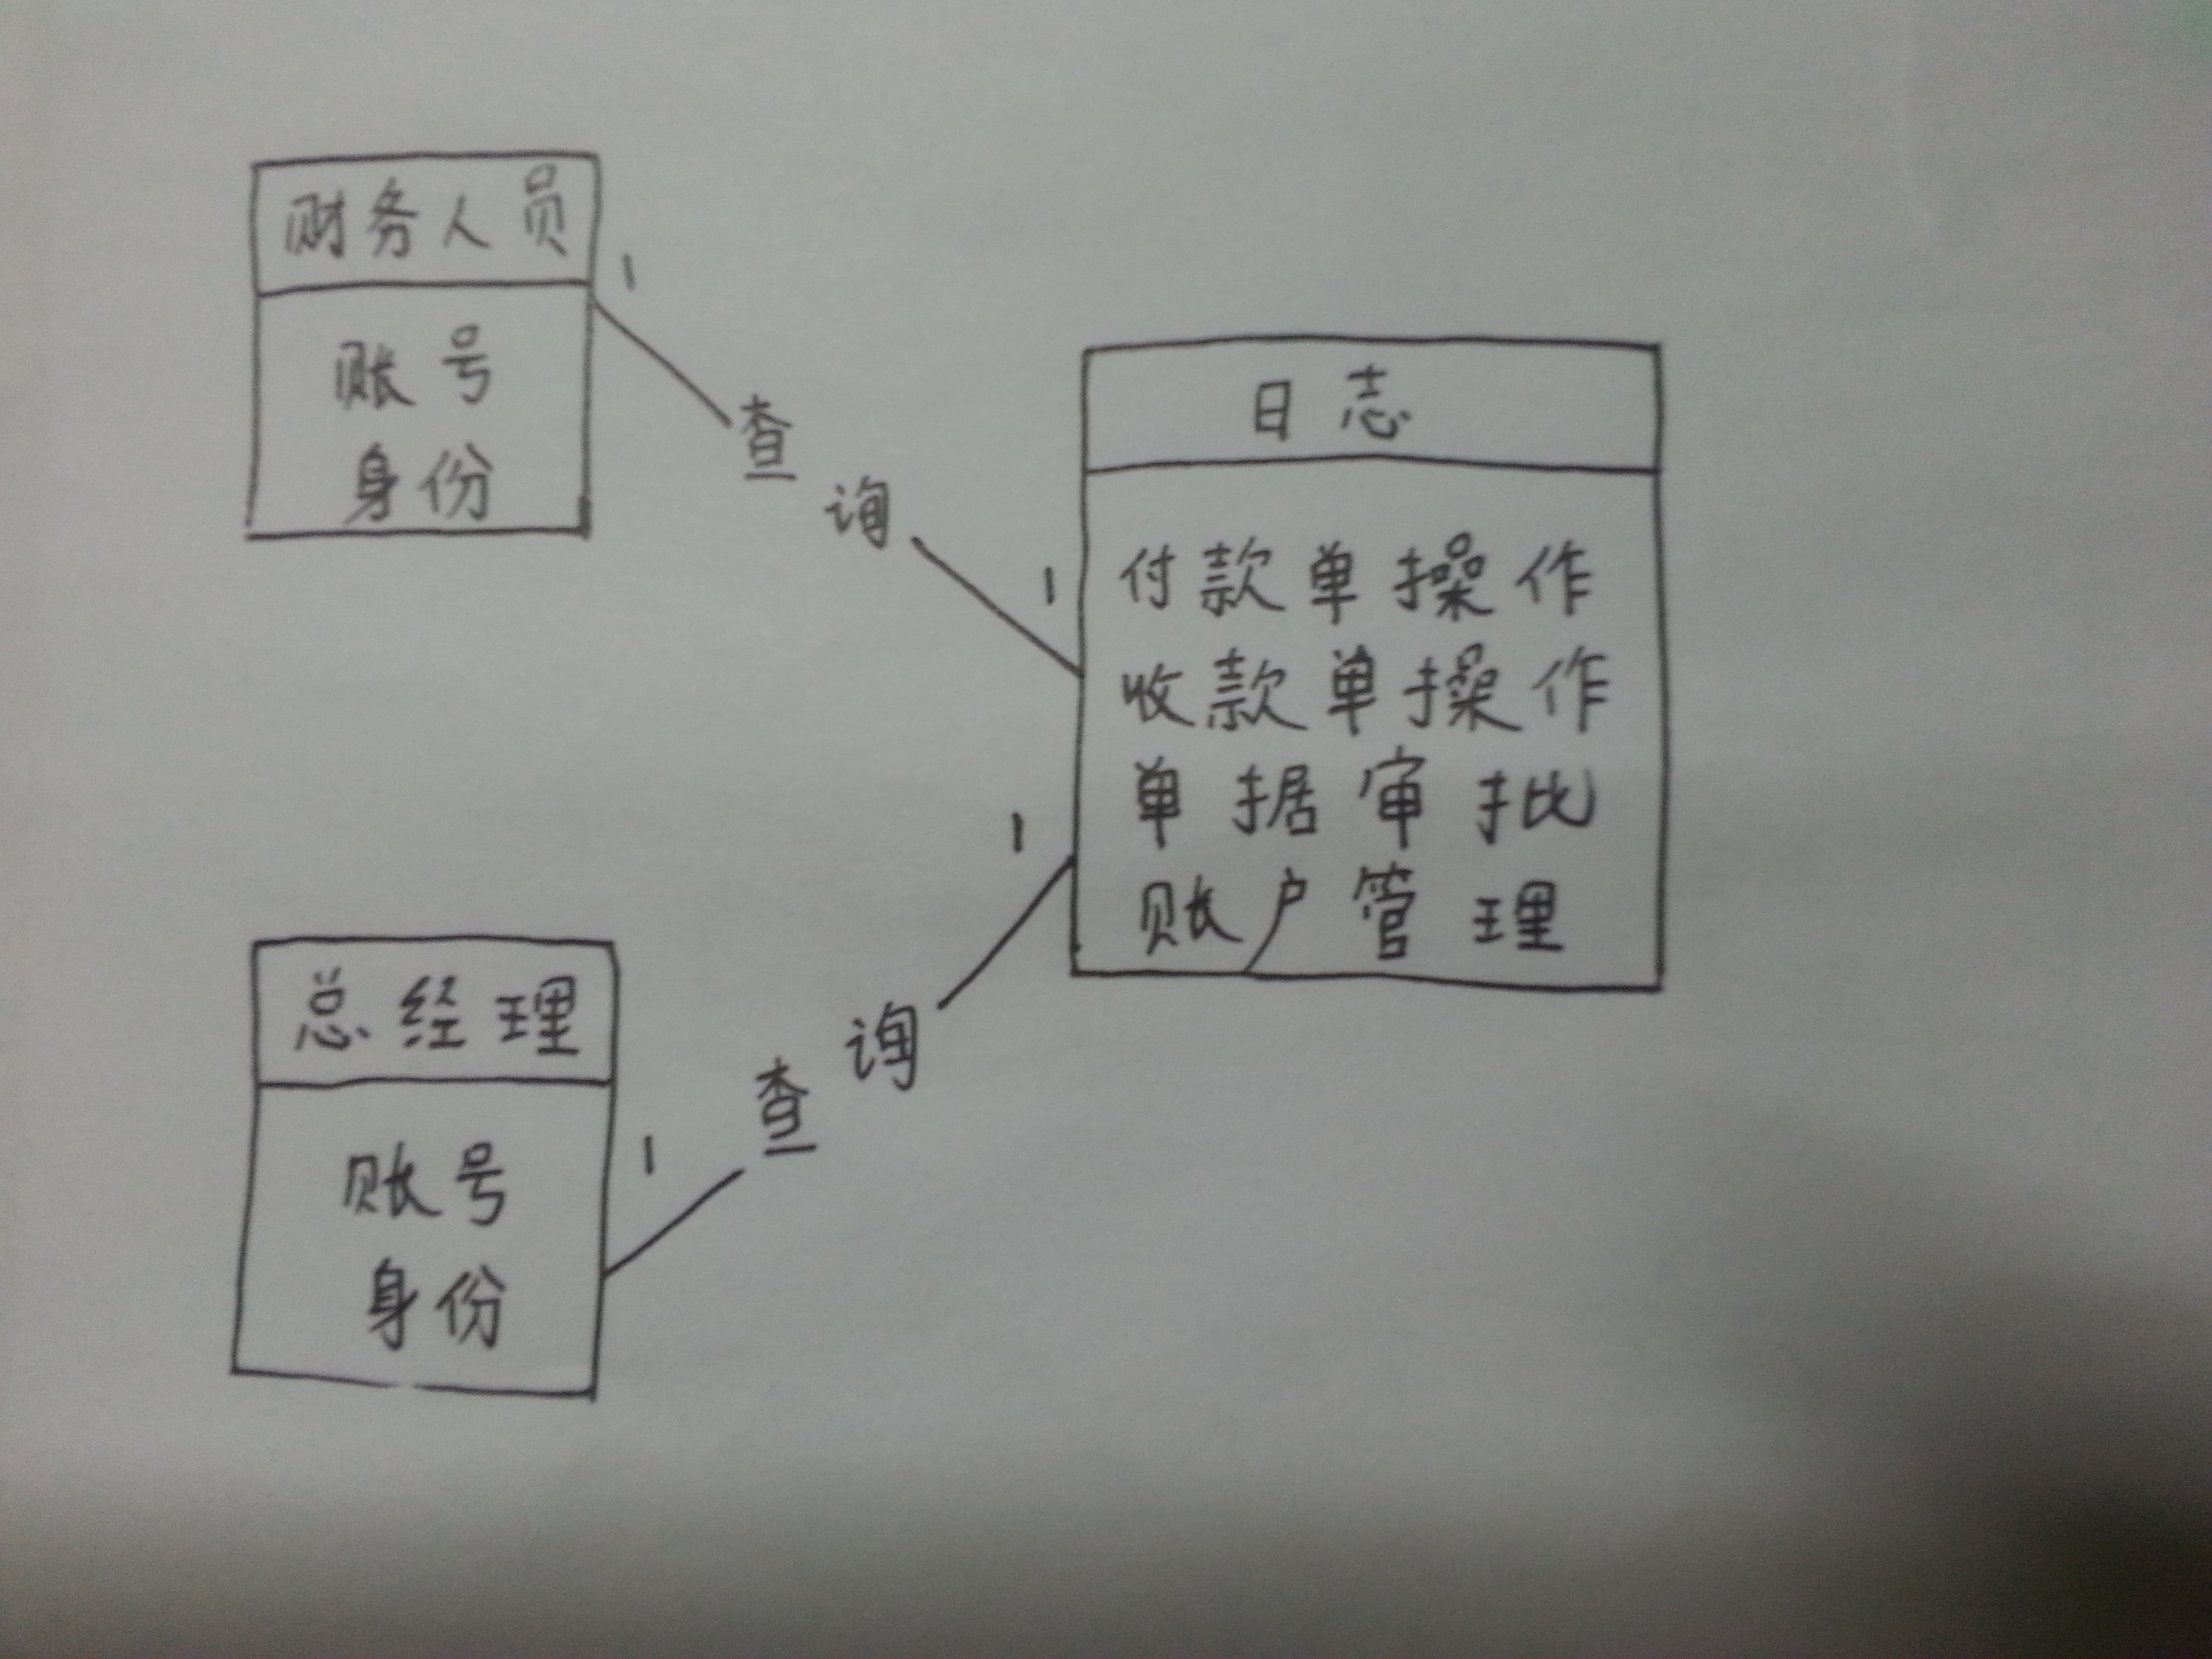 财务人员
账号
身份
1
查询
1
日志
付款单操作
收款单操作
单据审批
账户管理
1
查询
1
总经理
账号
身份